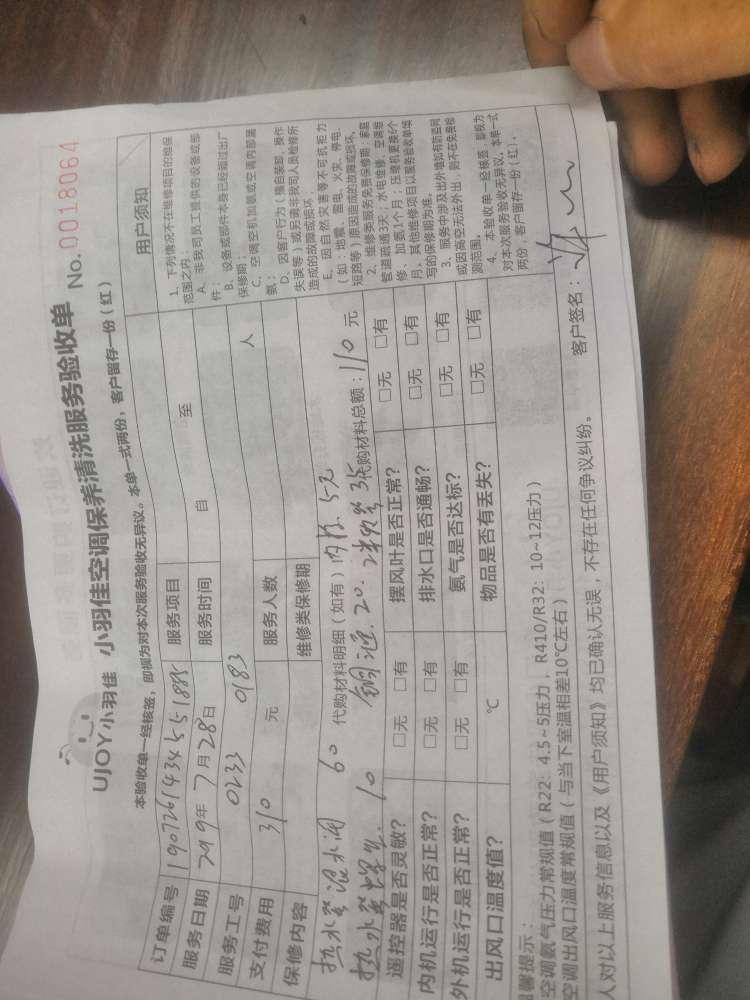 UJOY小羽佳 小羽佳空调保养清洗服务验收单 No. 0018064
本验收单一经核签，即视为对本次服务验收无异议。本单一式两份，客户留存一份（红）
订单编号 服务项目 用户须知
服务日期 年7月28日 服务时间 自 至
服务工号 0233 0183
支付费用 310 元 服务人数 人
保修内容 维修类保修期
热水器混水阀 60 代购材料明细（如有） 5元
10 20. 35 代购材料总额：110元
遥控器是否灵敏？ □无 □有 摆风叶是否正常？ □无 □有
内机运行是否正常？ □无 □有 排水口是否通畅？ □无 □有
外机运行是否正常？ □无 □有 氨气是否达标？ □无 □有
出风口温度值？ ℃ 物品是否有丢失？ □无 □有
1、下列情况不在维修项目的维保
范围之内：
A、非我司员工提供的设备或部
件；
B、设备或部件本身已经超过出厂
保修期；
C、空调空机加氨或空调内部漏
氨；
D、因客户行为（擅自装卸，操作
失误等）或另请非我司人员检修所
造成的故障或损坏
E、因自然灾害等不可抗拒力
（如：地震、雷电、火灾、停电、
短路等）原因造成的故障或损坏。
2、维修类服务免费保修期：家庭
管道疏通3天；水电维修、空调维
修、加氨1个月；压缩机更换6个
月，其他维修项目以服务验收单填
写的保修期为准。
3、服务中涉及出外墙如有防盗网
或因高空无法外出，则不在免费检
测范围。
4、本验收单一经核签，即视为
对本次服务验收无异议。本单一式
两份，客户留存一份（红）。
温馨提示：
空调氨气压力常规值（R22：4.5~5压力，R410/R32：10~12压力）
空调出风口温度常规值（与当下室温相差10℃左右）
人对以上服务信息以及《用户须知》均已确认无误，不存在任何争议纠纷。 客户签名：